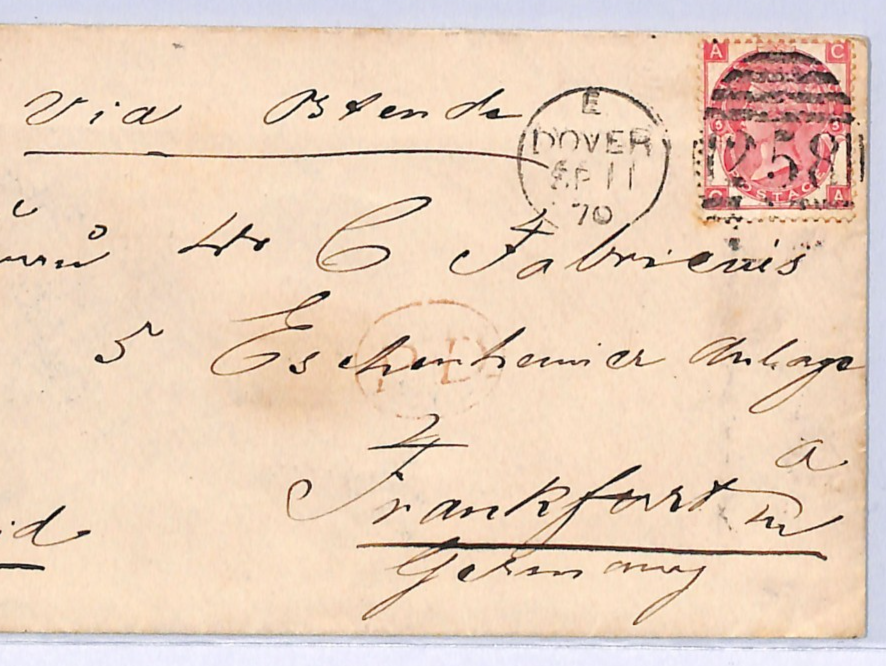 via Ostende
E
DOVER
SP 11
70
A C
258
POSTAGE
C A
C Fabricius
5 Eschenheimer Anlage
PD
a
Frankfurt
Germany